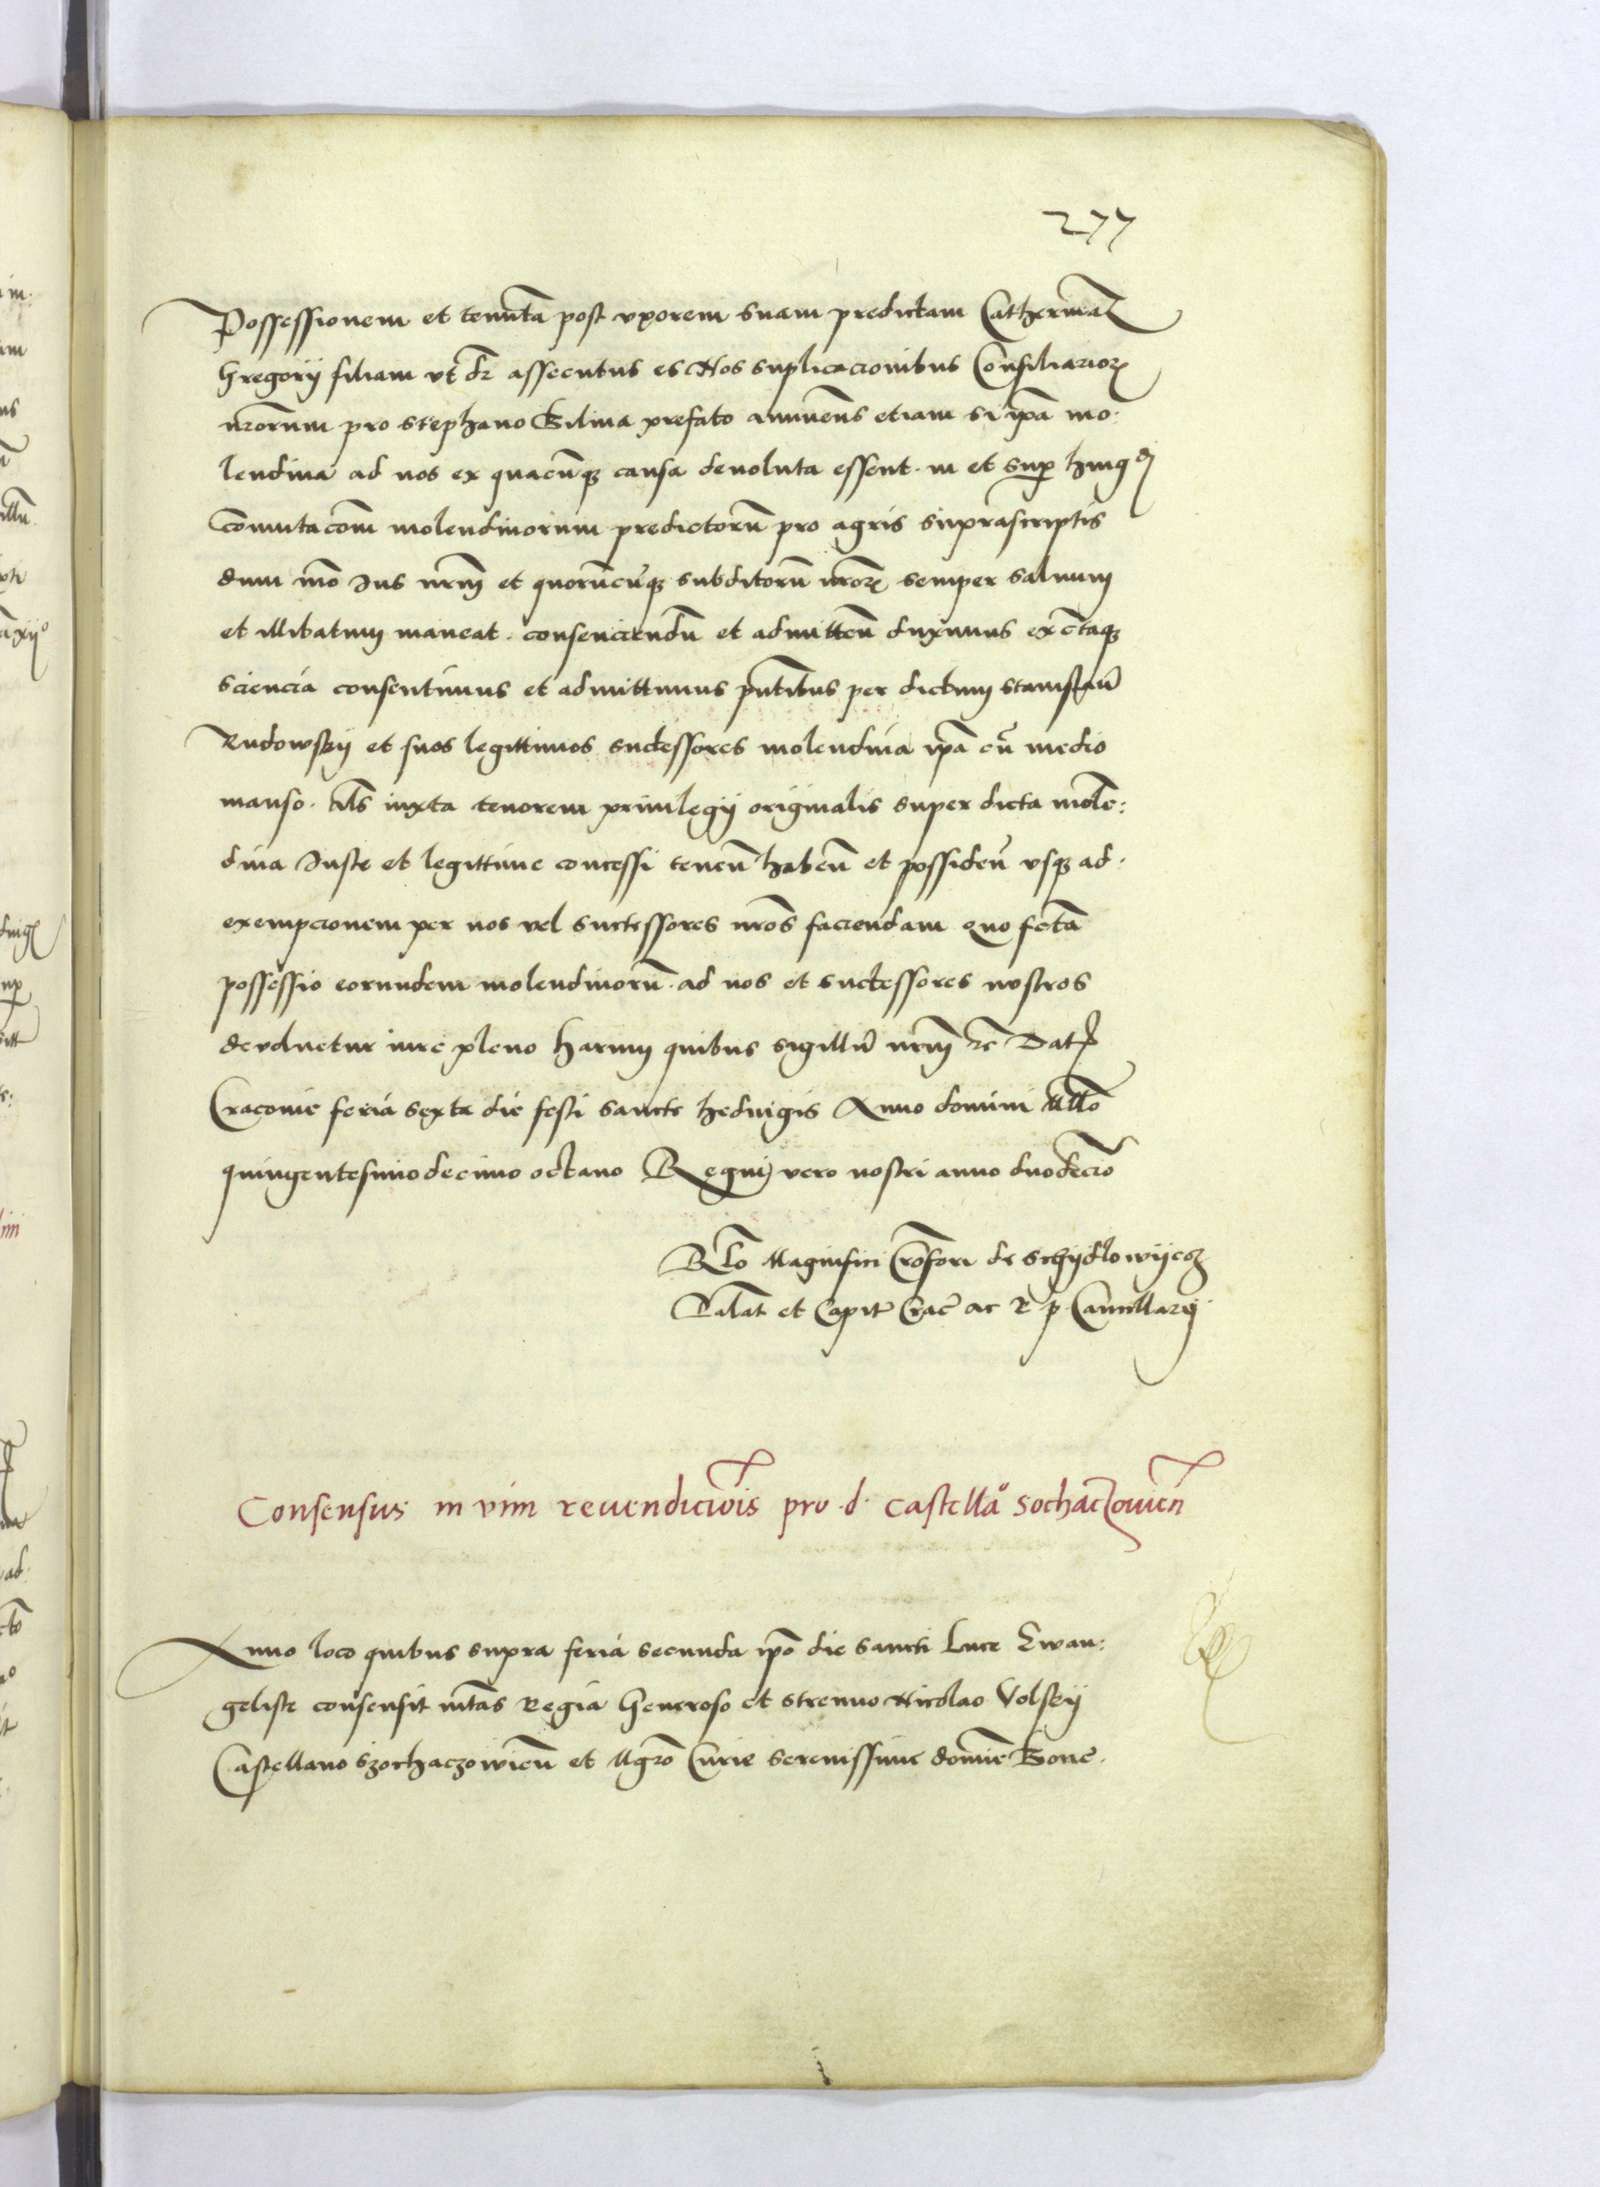 277
Possessionem et tenutã post vxorem suam predictam Catherinã
Gregorij filiam vt dr̃ assecutus es Nos suplicacionibus Consiliarior̃
nr̃orum pro stephano Bilina prefato annueñs etiam si ip̃a mo:
lendina ad nos ex quacũqꝫ causa deuoluta essent. in et sup̱ hmg̃di
Comutacõm molendinorum predictorũ pro agris suprascriptis
dum mõ Jus nr̃m et quorũcũqꝫ subditorũ nr̃or̃ semper saluum
et illibatum maneat. consenciendũ et admitteñ duximus ex c̃taqꝫ
sciencia consentimus et admittimus p̃ntibus per dictum stanislaũ
Rudowskij et suos legittimos successores molendina ip̃a cũ medio
manso. als̃ iuxta tenorem priuilegij originalis super dicta mole:
dina Juste et legittime concessi teneñ habeñ et possideñ vsqꝫ ad.
exempcionem per nos vel successores nr̃os faciendam quo fc̃ta
possessio eorundem molendinorũ. ad nos et successores nostros
deuoluetur iure pleno Harum quibus sigillũ nr̃m etc̃ Dat̃
Cracouie feria sexta die festi sancte hedwigis Anno domini Mllo
quingentesimodecimo octauo Regni vero nostri anno duodecĩo
Rl̃o Magnifici Cr̃ofori de Schydlowyecz
Palat̃ et Capit̃ Crac̃ ac R p Cancellarij
Consensus in vim reuendicõis pro .d. castellaº sochaczouieñ
Anno loco quibus supra feria secunda ip̃o die sancti Luce Ewan:
geliste consensit mtãs Regia Generoso et strenuo Nicolao Volskij
Castellano szochaczowieñ et Mgr̃o Curie serenissime domie Bone.